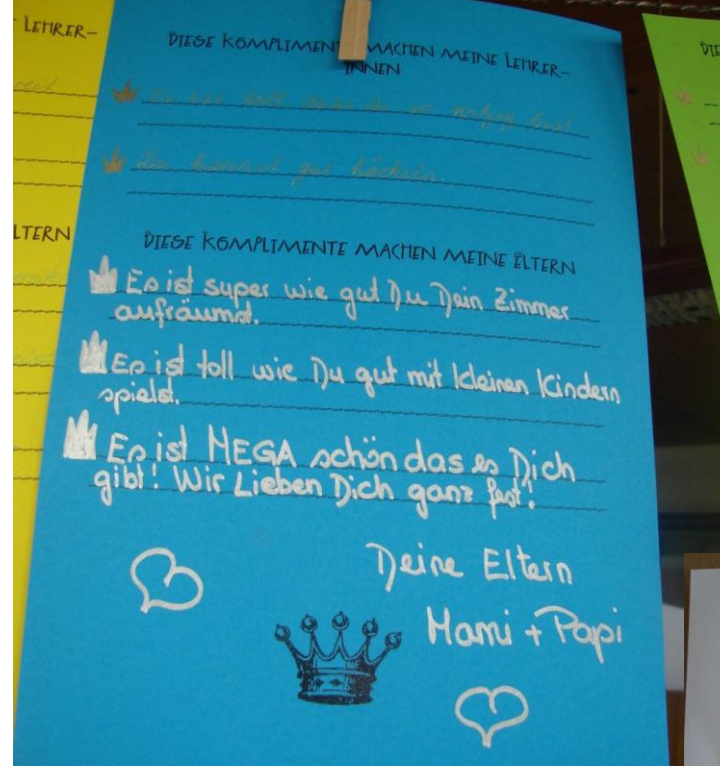 LEHRER-
LTERN
DIESE KOMPLIMENT MACHEN MEINE LEHRER-
INNEN
Du kannst gut häckeln
DIESE KOMPLIMENTE MACHEN MEINE ELTERN
Es ist super wie gut Du Dein Zimmer
aufräumst.
Es ist toll wie Du gut mit kleinen Kindern
spielst.
Es ist MEGA schön das es Dich
gibt! Wir Lieben Dich ganz fest!
Deine Eltern
Mami + Papi
DIE